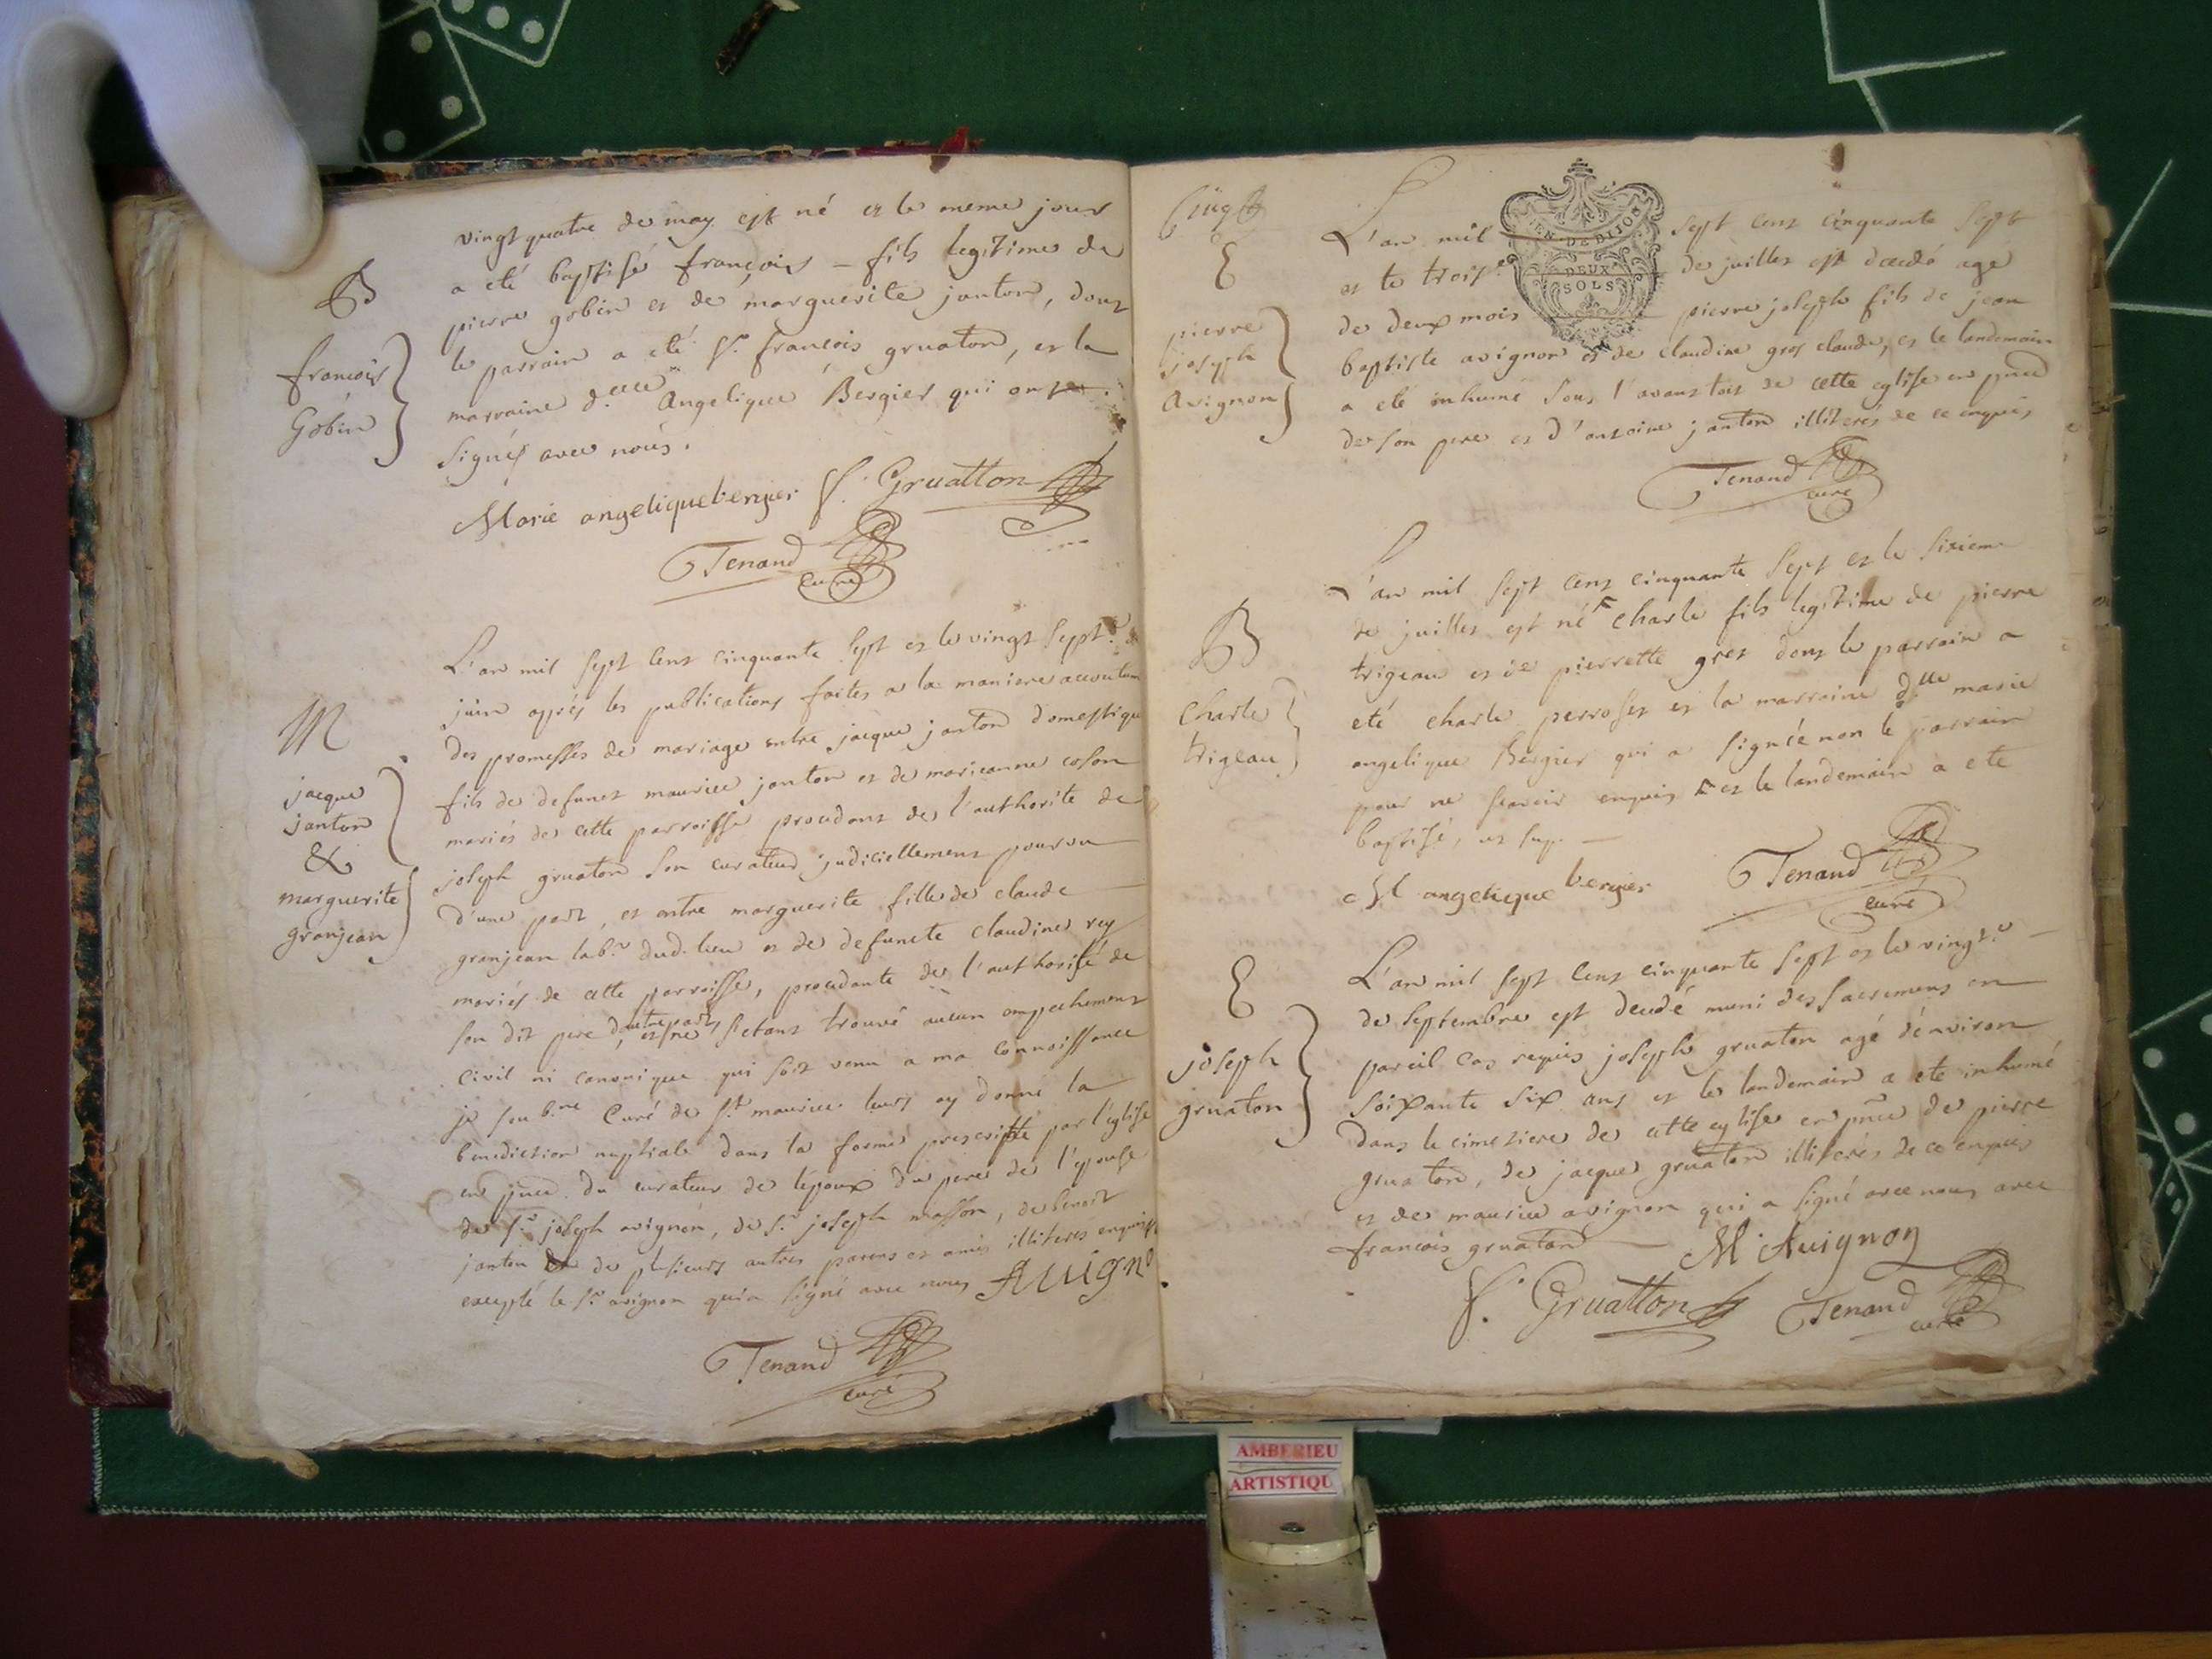 vingt quatre de may est né et le meme jour
a eté baptisé françois – fils legitime de
pierre gobin et de marguerite janton, dont
le parrain a eté Sr. françois gruaton, et la
marraine d.elle Angelique Bergier qui ont
signés avec nous.
Marie angelique bergier f. Gruatton
Tenand
curé
B
francois
Gobin
L'an mil sept cent cinquante sept et le vingt sept.e
juin après les publications faites a la maniere accoutum
des promesses de mariage entre jacque janton domestique
fils de defunct maurice janton et de marieanne colom
mariés de cette parroisse procedant de l'authorité de
joseph gruaton son curateur judiciellement pourvu
d'une part, et entre marguerite fille de claude
granjean lab.r dud. lieu et de defuncte claudine rey
mariés de cette parroisse, procedante de l'authorité de
son dit pere d'autre part, et ne s'etant trouvé aucun ampechement
civil ni canonique qui soit venu a ma connoissance
je sous.né Curé de st. maurice leurs ay donné la
benediction nuptiale dans la forme prescritte par l'église
en pnce. du curateur de l'epoux du pere de l'epouse
de sr. joseph avignon, de sr. joseph masson, de benoit
janton de plusieurs autres parens et amis illiteres enquis
excepté le sr. avignon qui a signé avec nous Avigno
Tenand
curé
M
jacque
janton
&
marguerite
granjean
L'an mil sept cent cinquante sept
et le trois.e de juillet est decedé agé
de deux mois pierre joseph fils de jean
baptiste avignon et de claudine gros claude, et le landemain
a eté inhumé sous l'avant toit de cette eglise en pnce
de son pere et d'antoine janton illiterés de ce enquis
Tenand
curé
EN. DE DIJON
DEUX
SOLS
E
pierre
joseph
Avignon
L'an mil sept cent cinquante sept et le sixiem
de juillet est né charle fils legitime de pierre
trigeau et de pierrette gret dont le parrain a
eté charle perroset et la marraine d.lle marie
angelique Bergier qui a signéé non le parrain
pour ne scavoir enquis et le landemain a eté
baptisé, ut sup. —
M angelique bergier
Tenand
curé
B
Charle
trigeau
L'an mil sept cent cinquante sept et le vingt.e
de septembre est decedé muni des sacremens en
pareil cas requis joseph gruaton agé d'environ
soixante six ans et le landemain a eté inhumé
dans le cimetiere de cette eglise en pnce de pierre
gruaton, de jacque gruaton illiterés de ce enquis
et de maurice avignon qui a signé avec nous avec
francois gruaton — M Avignon
f. Gruatton Tenand
curé
E
joseph
gruaton
AMBERIEU
ARTISTIQU